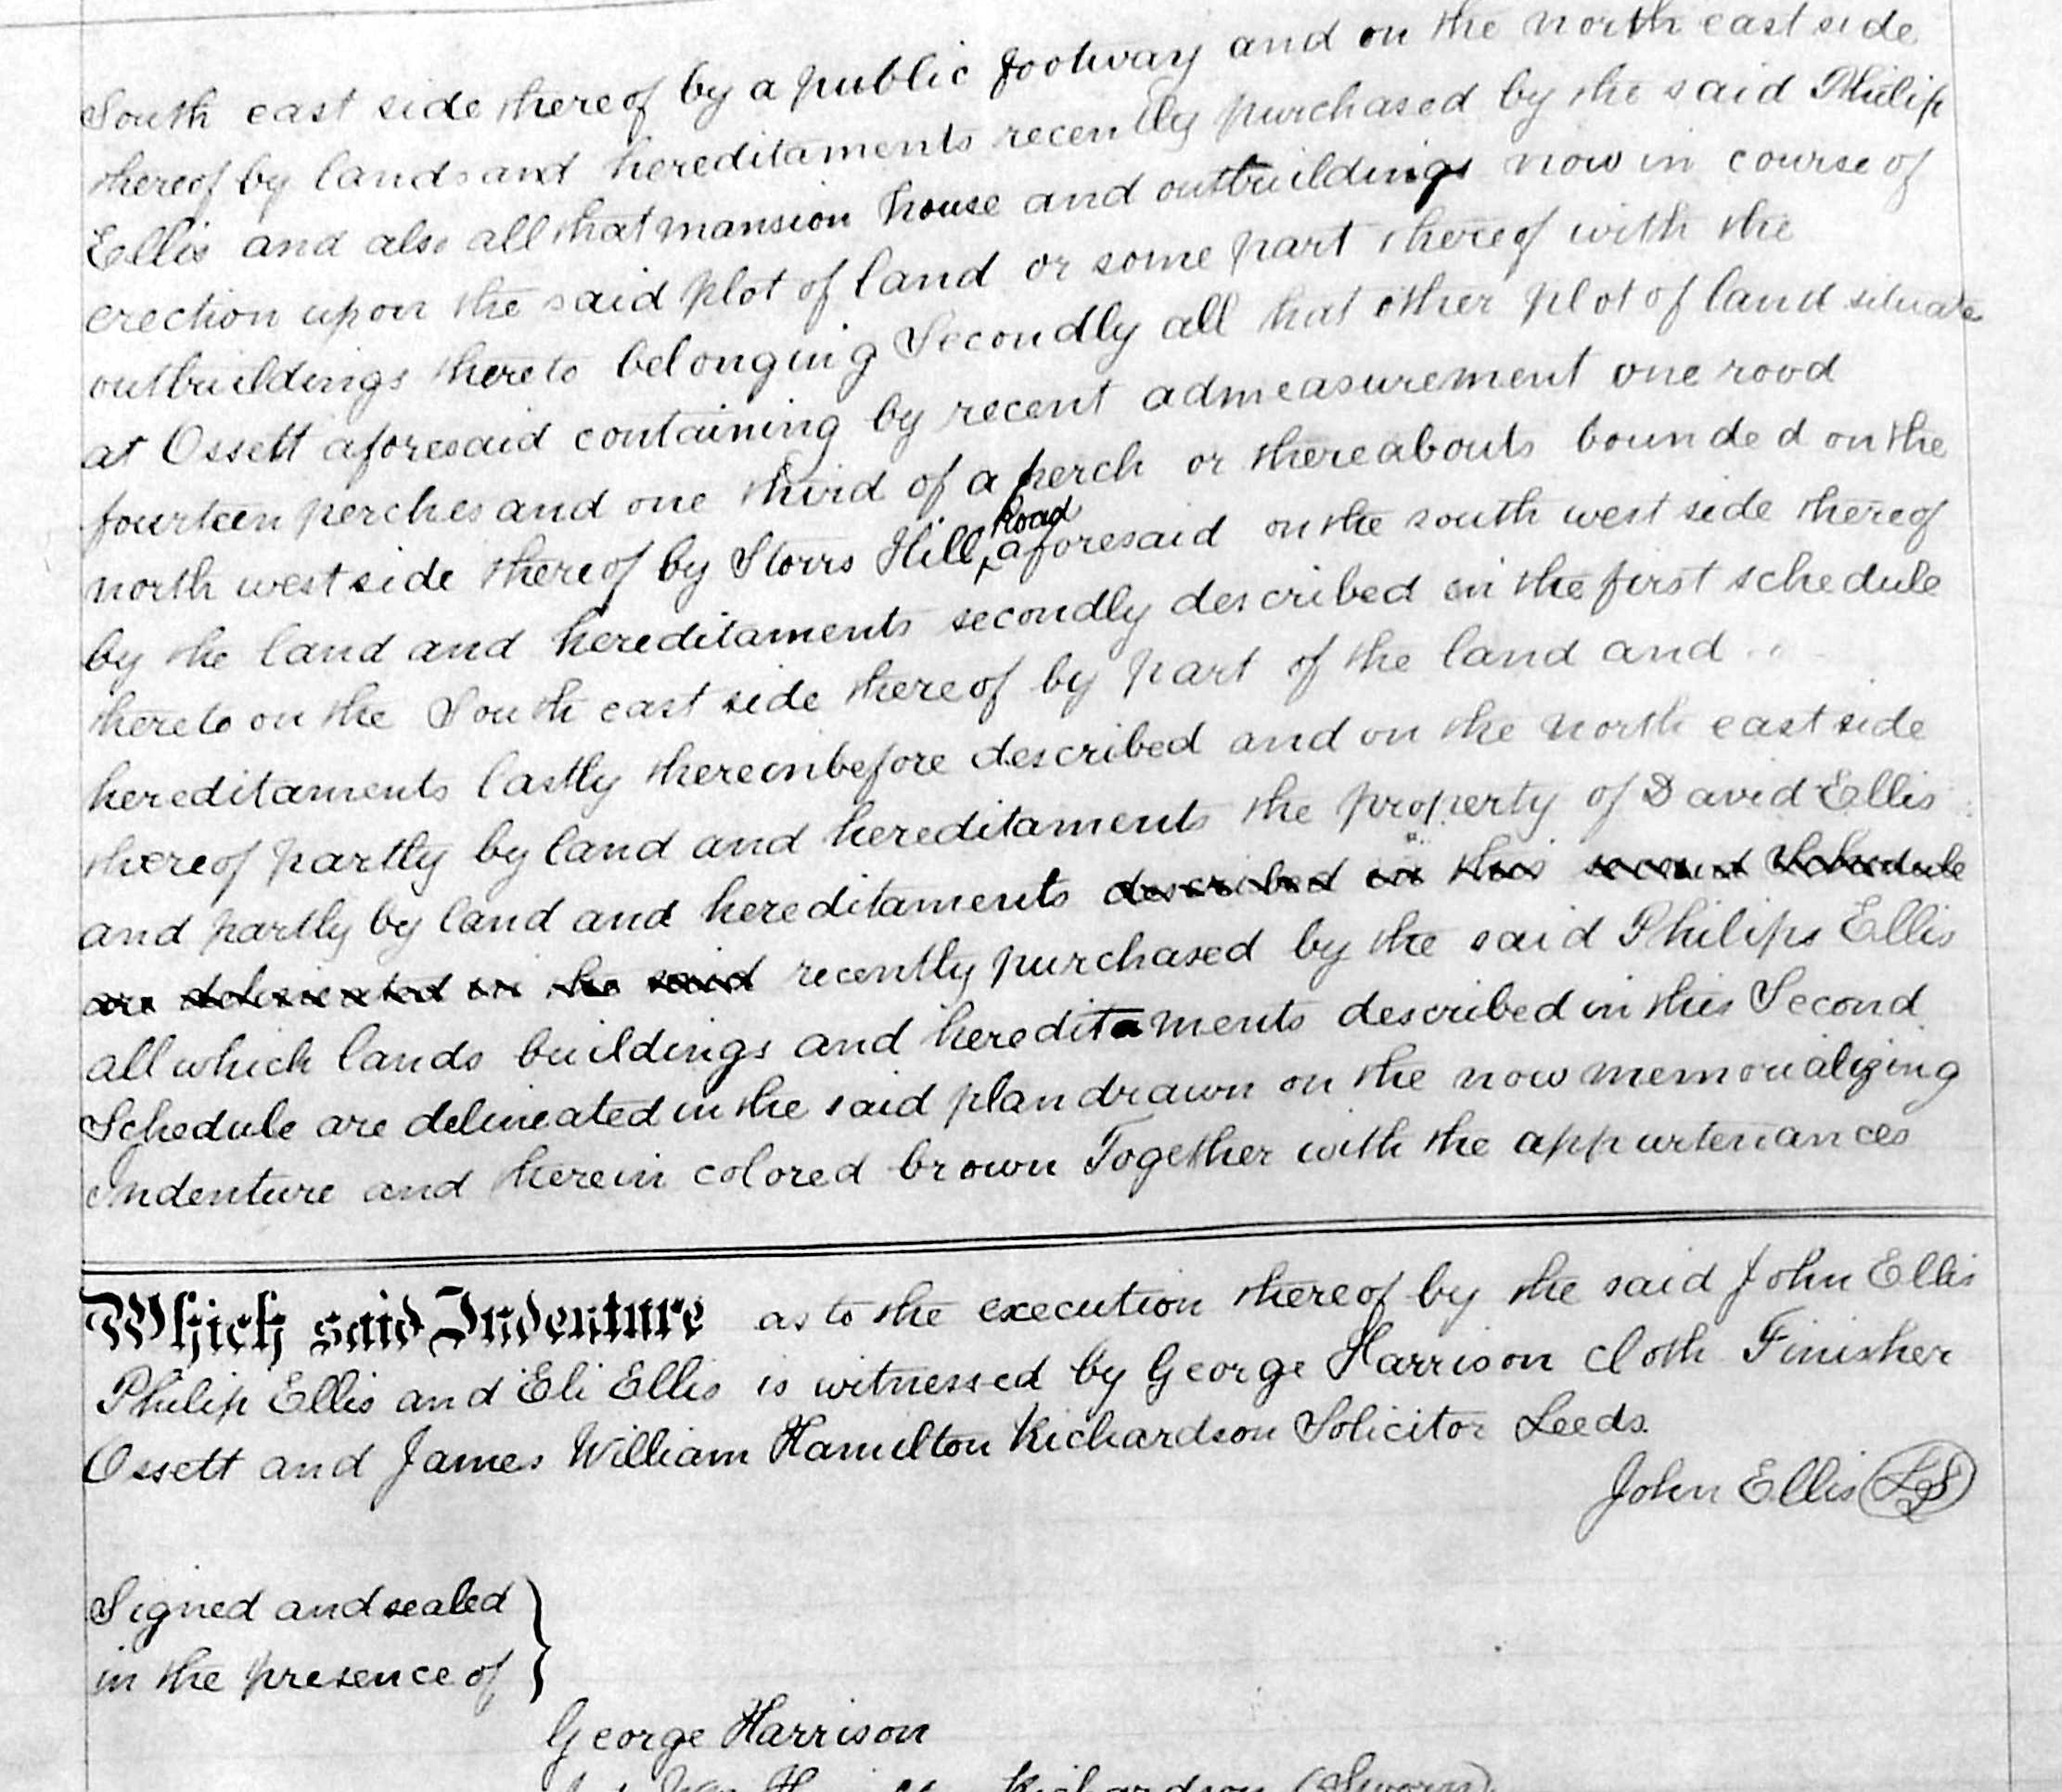 South east side thereof by a public footway and on the north east side
thereof by lands and hereditaments recently purchased by the said Philip
Ellis and also all that mansion house and outbuildings now in course of
erection upon the said plot of land or some part thereof with the
outbuildings thereto belonging Secondly all that other plot of land situate
at Ossett aforesaid containing by recent admeasurement one rood
fourteen perches and one third of a perch or thereabouts bounded on the
north west side thereof by Storrs Hill Road aforesaid on the south west side thereof
by the land and hereditaments secondly described in the first schedule
thereto on the South east side thereof by part of the land and
hereditaments lastly thereinbefore described and on the north east side
thereof partly by land and hereditaments the property of David Ellis
and partly by land and hereditaments described in this second Schedule
are delineated in the said recently purchased by the said Philips Ellis
all which lands buildings and hereditaments described in this Second
Schedule are delineated in the said plan drawn on the now memorializing
Indenture and therein colored brown Together with the appurtenances
Which said Indenture as to the execution thereof by the said John Ellis
Philip Ellis and Eli Ellis is witnessed by George Harrison Cloth Finisher
Ossett and James William Hamilton Richardson Solicitor Leeds.
John Ellis LS
Signed and sealed
in the presence of
George Harrison
Richardson (Sworn)